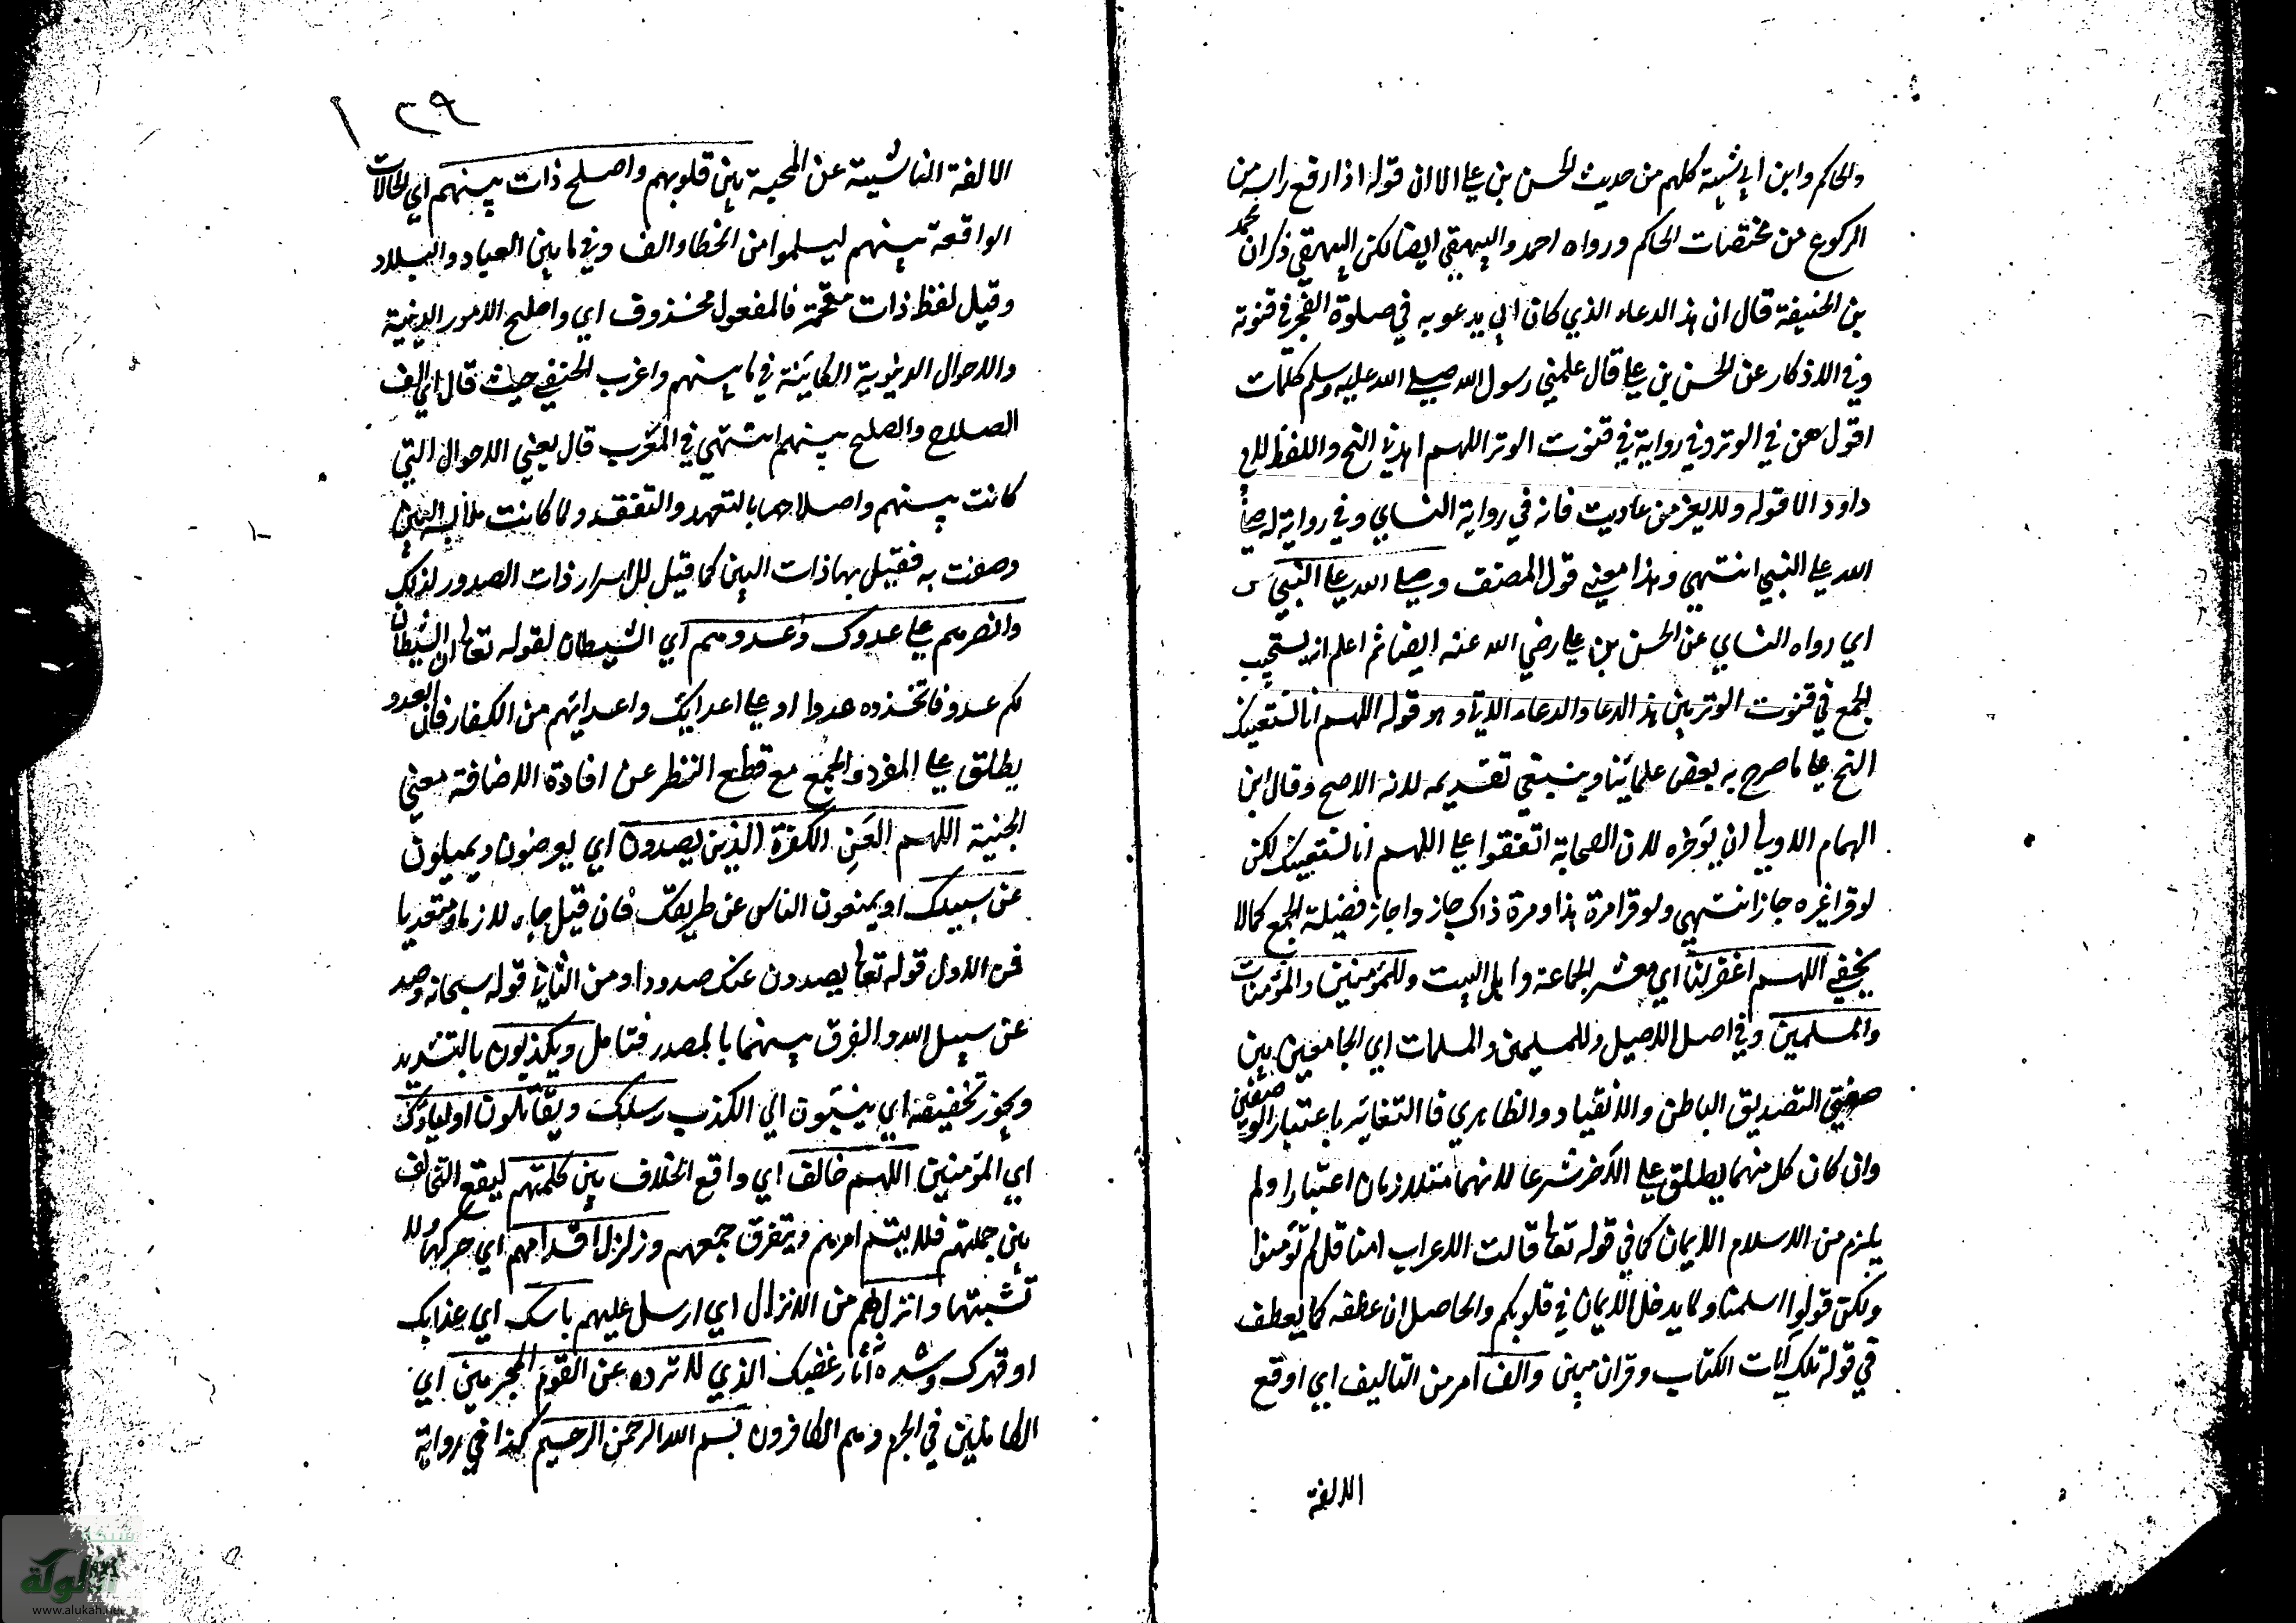 والحاكم وابن ابي شيبة كلهم من حديث الحسن بن علي الا ان قوله اذا رفع راسه من
الركوع من مختصات الحاكم ورواه احمد والبيهقي ايضا لكن البيهقي ذكر ان محمد
بن الحنيفة قال ان هذ الدعاء الذي كان ابي يدعو به في صلوة الفجر في قنوته
وفي الاذكار عن الحسن بن علي قال علمني رسول الله صلى الله عليه وسلم كلمات
اقولهن في الوتر وفي رواية في قنوت الوتر اللهم اهدني الخ واللفظ لابي
داود الا قوله ولا يعز من عاديت فانه في رواية النساي وفي رواية له وصلى
الله على النبي انتهى وهذا معنى قول المصنف وصلى الله على النبي س
اي رواه النساي عن الحسن بن علي رضي الله عنه ايضا ثم اعلم انه يستحب
الجمع في قنوت الوتر بين هذ الدعا والدعاء الاتي وهو قوله اللهم انا نستعينك
الخ على ما صرح به بعض علمائنا وينبغي تقديمه لانه الاصح وقال ابن
الهمام الاولى ان يؤخره لان الصحابة اتفقوا على اللهم انا نستعينك لكن
لو قرا غيره جاز انتهى ولو قرا مرة هذا ومرة ذاك جاز واحاز فضيلة الجمع كما لا
يخفى اللهم اغفر لنا اي معشر الجماعة واهل البيت وللمؤمنين والمؤمنات
والمسلمين وفي اصل الاصيل وللمسلمين والمسلمات اي الجامعين بين
صفتي التصديق الباطن والانقياد والظاهري فالتغاير باعتبار الوصفين
وان كان كل منهما يطلق على الاخر شرعا لانهما متلازمان اعتبارا ولم
يلزم من الاسلام الايمان كما في قوله تعالى قالت الاعراب امنا قل لم تؤمنوا
ولكن قولوا اسلمنا ولما يدخل الايمان في قلوبكم والحاصل ان عطفه كما يعطف
في قوله تلك ايات الكتاب وقران مبين والف امر من التاليف اي اوقع
الالفة
٢٩
الالفة الناشيئة عن المحبة بين قلوبهم واصلح ذات بينهم اي الحالات
الواقعة بينهم ليسلموا من الخطا والف وفي ما بين العباد والبلاد
وقيل لفظ ذات مقحمة فالمفعول محذوف اي واصلح الامور الدينية
والاحوال الدنيوية الكائنة في ما بينهم واغرب الحنفي حيث قال اي الف
الصلاح والصلح بينهم انتهى في المغرب قال يعني الاحوال التي
كانت بينهم واصلاحها بالتعهد والتفقد ولما كانت ملابسة البين
وصفت به فقيل بها ذات البين كما قيل للاسرار ذات الصدور لذلك
وانصرهم على عدوك وعدوهم اي الشيطان لقوله تعالى ان الشيطان
لكم عدو فاتخذوه عدوا او على اعدايك واعدائهم من الكفار فان العدو
يطلق على المفرد والجمع مع قطع النظر عن افادة الاضافة معنى
الجنية اللهم العن الكفرة الذين يصدون اي يعرضون ويميلون
عن سبيلك او يمنعون الناس عن طريقك فان قيل جاء لازما ومتعديا
فمن الاول قوله تعالى يصدون عنك صدودا ومن الثاني قوله سبحانه وصد
عن سبيل الله والفرق بينهما بالمصدر فتامل ويكذبون بالتشديد
ويجوز تخفيفه اي ينسبون الى الكذب رسلك ويقاتلون اولياؤك
اي المؤمنين اللهم خالف اي واقع الخلاف بين كلمتهم ليقع التخالف
بين جملتهم فلا يتم امرهم ويتفرق جمعهم وزلزل اقدامهم اي حركها ولا
تثبتها وانزل بهم من الانزال اي ارسل عليهم باسك اي عذابك
او قهرك وشدة اثار غضبك الذي لا ترده عن القوم المجرمين اي
الكاملين في الجرم وهم الكافرون بسم الله الرحمن الرحيم كذا في رواية
الألوكة
www.alukah.net